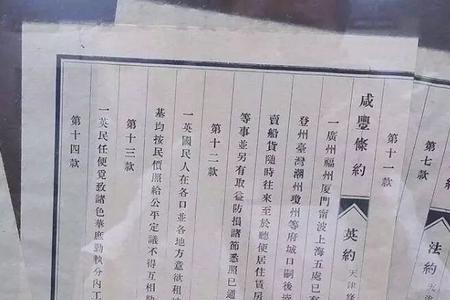 第七款
法約
咸豐條約
英約 天津
第十一款
一廣州福州厦門甯波上海五處已有
登州臺灣潮州瓊州等府城口嗣後
賣船貨隨時往來至於聽便居住賃房
等事並另有取益防損諸節悉照已通
第十二款
一英國民人在各口並各地方意欲租
基均按民價照給公平定議不得互相勒
第十三款
一英民任便覓致諸色華庶勤執分内工
第十四款